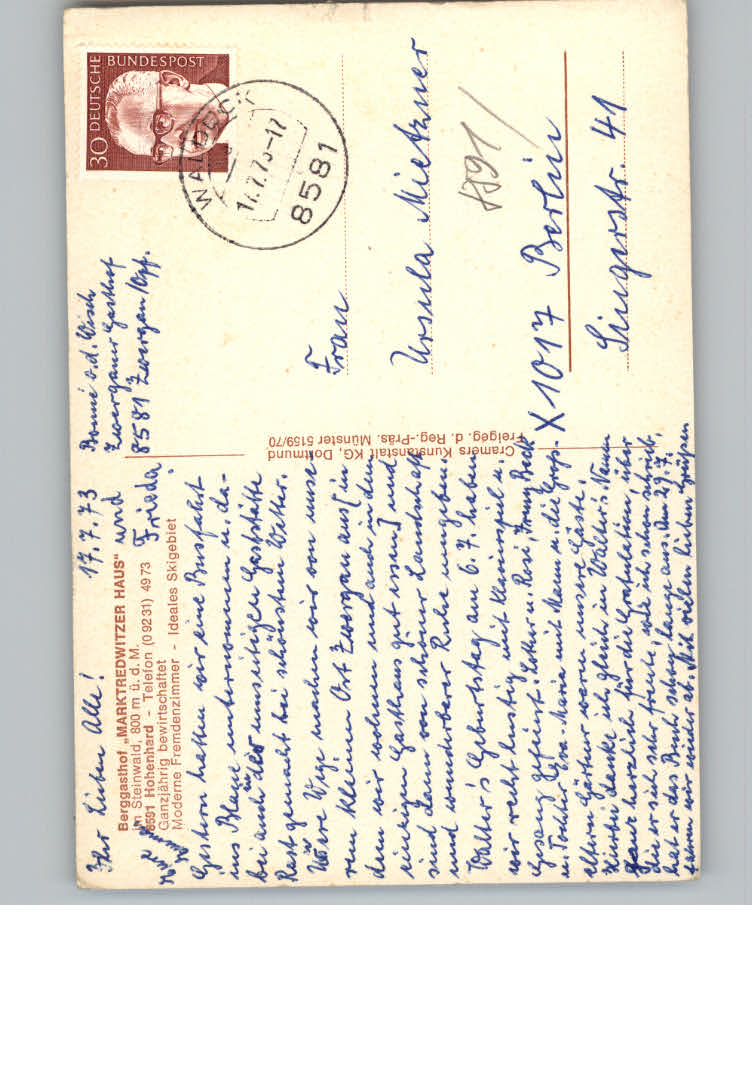 Ihr Lieben Alle! 17.7.73
Berggasthof „MARKTREDWITZER HAUS"
im Steinwald, 800 m ü. d. M.
8591 Hohenhard - Telefon (0 92 31) 49 73
Ganzjährig bewirtschaftet
Moderne Fremdenzimmer - Ideales Skigebiet
und
Frieda
Gestern hatten wir eine Busfahrt
ins Blaue unternommen u. da-
bei auch in der umseitigen Gaststätte
Rast gemacht bei schönstem Wetter.
Wege machen wir von unse-
rem kleinen Ort Zwergau aus [in
dem wir wohnen und auch in dem
einzigen Gasthaus gut essen] und
sind dann von schöner Landschaft
und wunderbarer Ruhe umgeben.
Walter's Geburtstag am 6.7. haben
wir recht lustig mit Klavierspiel u.
Gesang gefeiert. Lothar u. Rosi, Fanny Beck
u. Tochter Eva-Maria mit Mann u. die Groß-
eltern Gärtner waren unsere Gäste.
Hierbei danke ich gleich in Walter's Namen
ganz herzlich für die Gratulation, über
die er sich sehr freute, wie ich schon schrieb
hat er das Buch schon lange aus. Am 29.7.
fahren wir wieder ab. Mit vielen lieben Grüßen
Cramers Kunstanstalt KG, Dortmund
Freigeg. d. Reg.-Präs. Münster 5159/70
Bonné v.d. Wisch
Zwergauer Gasthof
8581 Zwergau/Opf.
DEUTSCHE BUNDESPOST
30
WALDECK
17.7.73-17
8581
Frau
Ursula Mietzner
1891/
X 1017 Berlin
Singerstr. 41